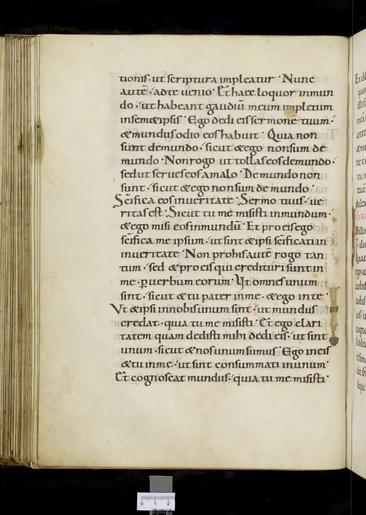 tionis · ut scriptura impleatur · Nunc
autē · ad te venio · Et haec loquor in mun
do · ut habeant gaudiū meum impletum
in semetipsis · Ego dedi eis sermonē tuum ·
& mundus odio eos habuit · Quia non
sunt de mundo · sicut & ego non sum de
mundo · Non rogo ut tollas eos de mundo ·
sed ut serves eos a malo · De mundo non
sunt · sicut & ego non sum de mundo ·
Scifica eos in veritate · Sermo tuus · ve
ritas est · Sicut tu me misisti in mundum ·
& ego misi eos in mundū · Et pro eis ego
scifica me ipsum · ut sint & ipsi scificati in
in veritate · Non pro his autē rogo tan
tum · sed & pro eis qui credituri sunt in
me · p verbum eorum · Ut omnes unum
sint · sicut & tu pater in me · & ego in te ·
Ut & ipsi in nobis unum sint · ut mundus
credat · quia tu me misisti · Et ego clari
tatem quam dedisti mihi dedi eis · ut sint
unum · sicut & nos unum sumus · Ego in eis
& tu in me · ut sint consummati in unum ·
Et cognoscat mundus · quia tu me misisti ·